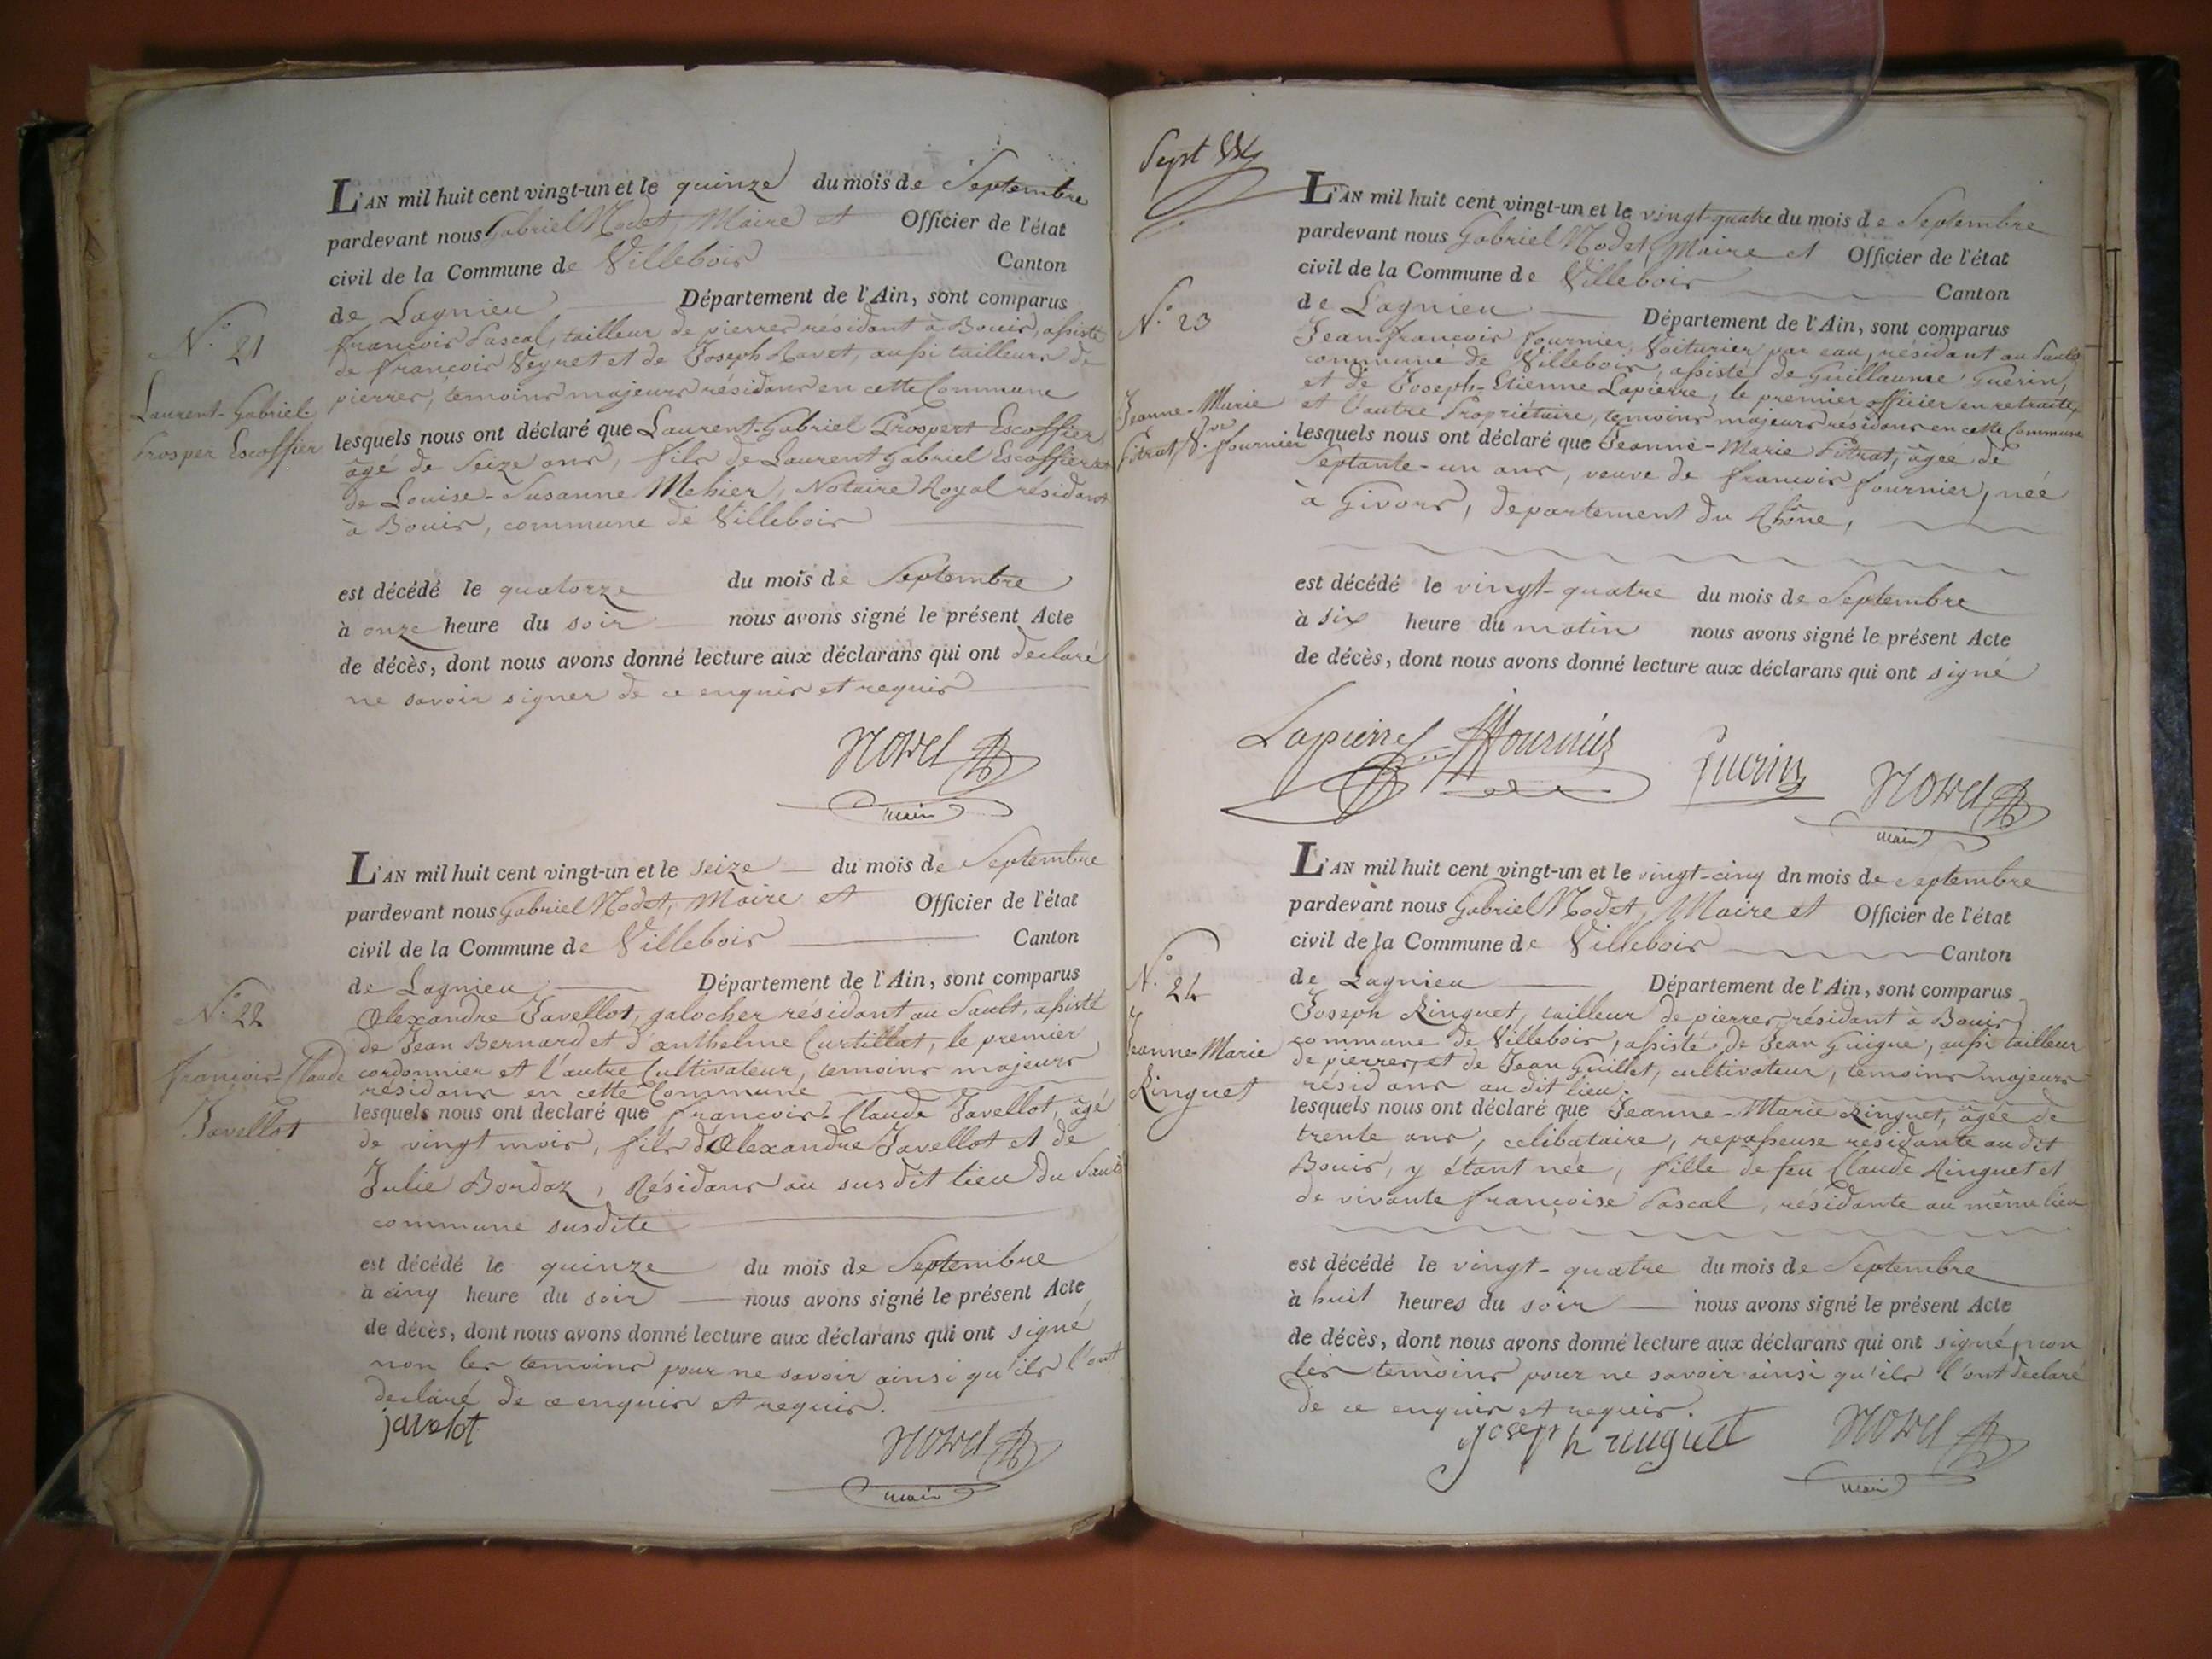 L'AN mil huit cent vingt-un et le quinze du mois de Septembre
pardevant nous Gabriel Nodet, Maire et Officier de l'état
civil de la Commune de Villebois Canton
de Lagnieu Département de l'Ain, sont comparus
N.° 21
françois Pascal, tailleur de pierres résidant à Bouis, assisté
de françois Veyret et de Joseph Ravet, aussi tailleurs de
pierres, temoins majeurs résidans en cette Commune
Laurent-Gabriel-
Prosper Escoffier
lesquels nous ont déclaré que Laurent-Gabriel Prospert Escoffier
âgé de Seize ans, fils de Laurent Gabriel Escoffier et
de Louise-Susanne Mehier, Notaire Royal résidant
à Bouis, commune de Villebois
est décédé le quatorze du mois de Septembre
à onze heure du soir nous avons signé le présent Acte
de décès, dont nous avons donné lecture aux déclarans qui ont declaré
ne savoir signer de ce enquis et requis
Nodet
maire
L'AN mil huit cent vingt-un et le seize du mois de Septembre
pardevant nous Gabriel Nodet, Maire et Officier de l'état
civil de la Commune de Villebois Canton
de Lagnieu Département de l'Ain, sont comparus
N.° 22
Alexandre Javellot, galocher résidant au Sault, assisté
de Jean Bernard et d'anthelme Curtillat, le premier
françois-Claude
Javellot
cordonnier et l'autre Cultivateur, temoins majeurs
résidans en cette Commune
lesquels nous ont declaré que françois-Claude Javellot, âgé
de vingt mois, fils d'Alexandre Javellot et de
Julie Bordaz, Résidans au susdit lieu du Sault
commune susdite
est décédé le quinze du mois de Septembre
à cinq heure du soir nous avons signé le présent Acte
de décès, dont nous avons donné lecture aux déclarans qui ont signé
non les temoins pour ne savoir ainsi qu'ils l'ont
declaré de ce enquis et requis.
javelot
Nodet
maire
Sept
L'AN mil huit cent vingt-un et le vingt-quatre du mois de Septembre
pardevant nous Gabriel Nodet, Maire et Officier de l'état
civil de la Commune de Villebois Canton
de Lagnieu Département de l'Ain, sont comparus
N.° 23
Jean-françois fournier, Voiturier par eau, résidant au Sault
commune de Villebois, assisté de Guillaume Guerin,
et de Joseph-Etienne Lapierre, le premier officier en retraite,
et l'autre Propriétaire, temoins majeurs résidans en cette Commune
Jeanne-Marie
Pitrat V.ve fournier
lesquels nous ont déclaré que Jeanne-Marie Pitrat, âgée de
Septante-un ans, veuve de françois fournier, née
à Givors, departement du Rhône,
est décédé le vingt-quatre du mois de Septembre
à six heure du matin nous avons signé le présent Acte
de décès, dont nous avons donné lecture aux déclarans qui ont signé
Lapierre JFfournier Guerin Nodet
maire
L'AN mil huit cent vingt-un et le vingt-cinq dn mois de Septembre
pardevant nous Gabriel Nodet, Maire et Officier de l'état
civil de la Commune de Villebois Canton
de Lagnieu Département de l'Ain, sont comparus
N.° 24
Jeanne-Marie
Ringuet
Joseph Ringuet, tailleur de pierres, résidant à Bouis
commune de Villebois, assisté de Jean Guigue, aussi tailleur
de pierres, et de Jean Guillet, cultivateur, temoins majeurs
résidans au dit lieu
lesquels nous ont déclaré que Jeanne-Marie Ringuet, âgée de
trente ans, celibataire, repasseuse residante au dit
Bouis, y étant née, fille de feu Claude Ringuet et
de vivante françoise Pascal, résidante au même lieu
est décédé le vingt-quatre du mois de Septembre
à huit heures du soir nous avons signé le présent Acte
de décès, dont nous avons donné lecture aux déclarans qui ont signé, non
les temoins pour ne savoir ainsi qu'ils l'ont declaré
de ce enquis et requis.
joseph ringuet Nodet
maire